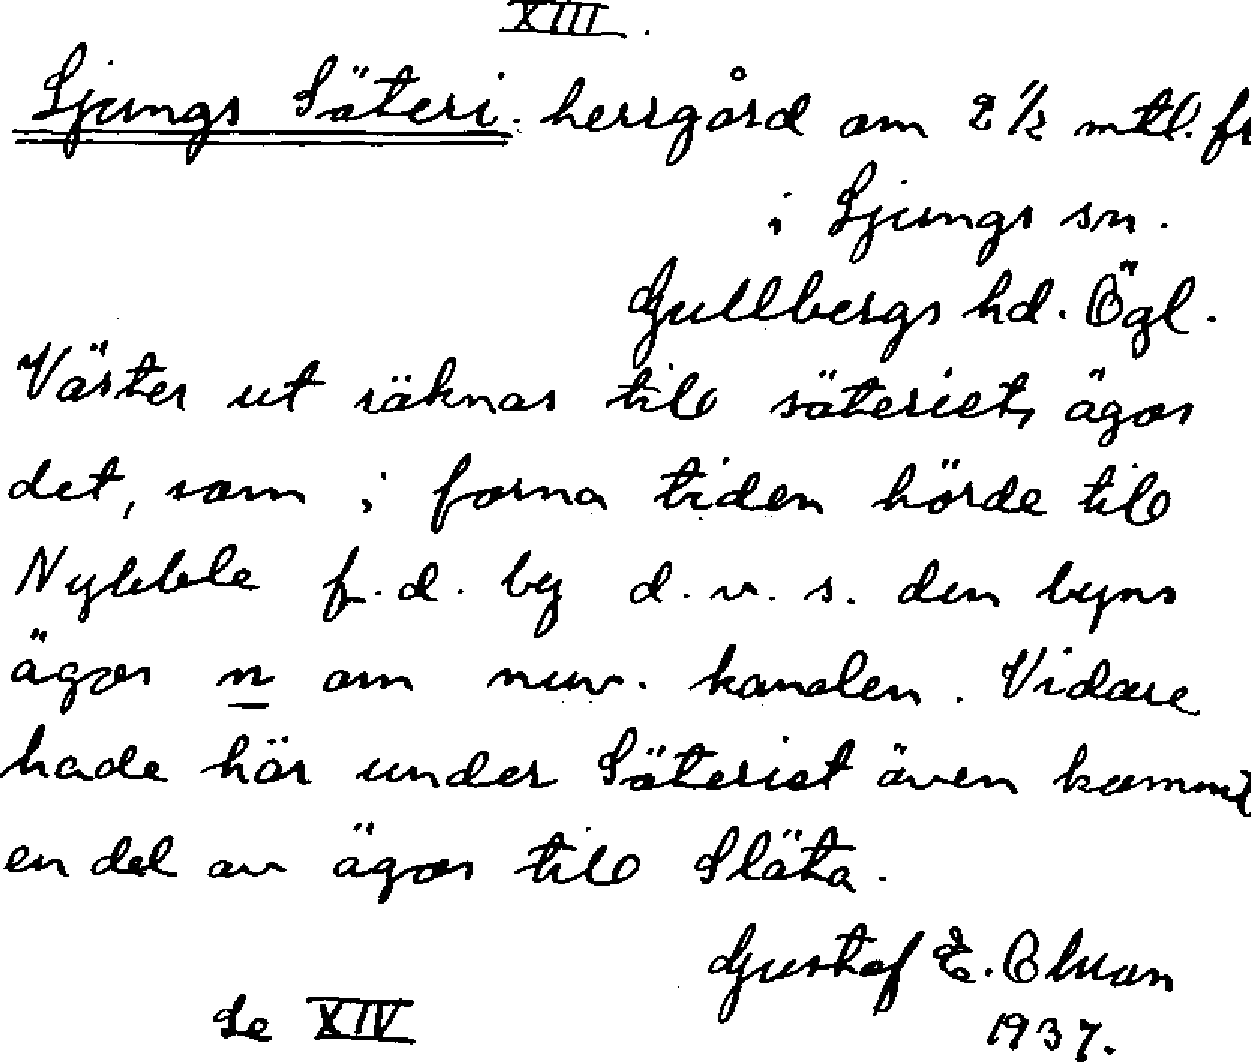 XIII.
Ljungs Säteri. herrgård om 2 1/2 mtl. fr
i Ljungs sn.
Gullbergs hd. Ögl.
Väster ut räknas till säteriets ägor
det, som i forna tiden hörde till
Nykkble f.d. by d.v.s. den byns
ägor n om nuv. kanalen. Vidare
hade här under Säteriet även kommit
en del av ägor till Släta.
Gustaf E.
1937.
Se XIV